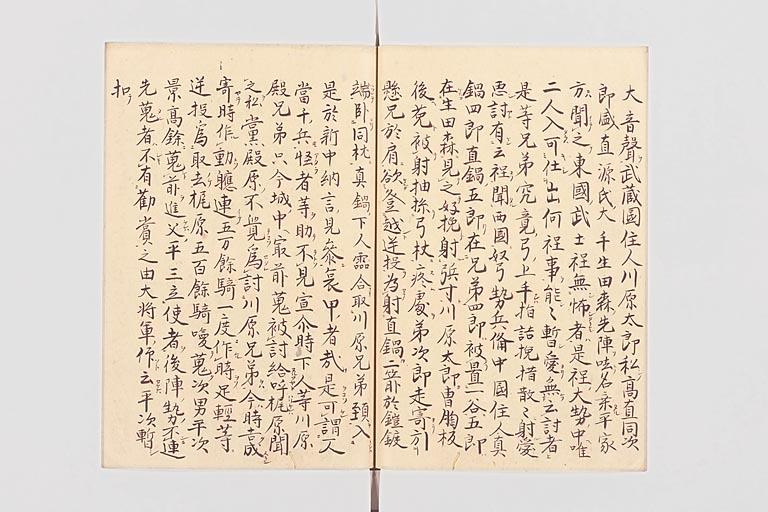 大音聲武蔵國住人川原太郎私高直同次
郎盛直源氏大手生田森先陣哉名乗平家
方聞之東國武士程無怖者是程大勢中唯
二人入可仕出何程事能々暫愛無云討者
是等兄弟究竟弓上手指詰挽指散々射愛
悪討有云程聞西國好弓勢兵備中國住人真
鍋四郎直鍋五郎在兄弟四郎被置一谷五郎
在生田森見之好挽射浜寸川原太郎曹胸板
後菟被射抽捺弓杖疼處弟次郎走寄引
懸兄於肩欲登越逆投為射直鍋二箭於鎧鏃
端臥同枕真鍋下人霊合取川原兄弟頚入
是於新中納言見参哀甲者哉是可謂一人
當千兵怪者等助不見宣介時下人等川原
殿兄弟只今城中寂前蒐被討給呼梶原聞
之私黨殿原不覚為討川原兄弟今時喜成
寄時作動轆連五万餘騎一度作時足輕等
逆投為取去梶原五百餘騎喚蒐次男平次
景高餘蒐前進父平三立使者後陣勢不連
先蒐者不有勸賞之由大将軍作云平次暫
扣